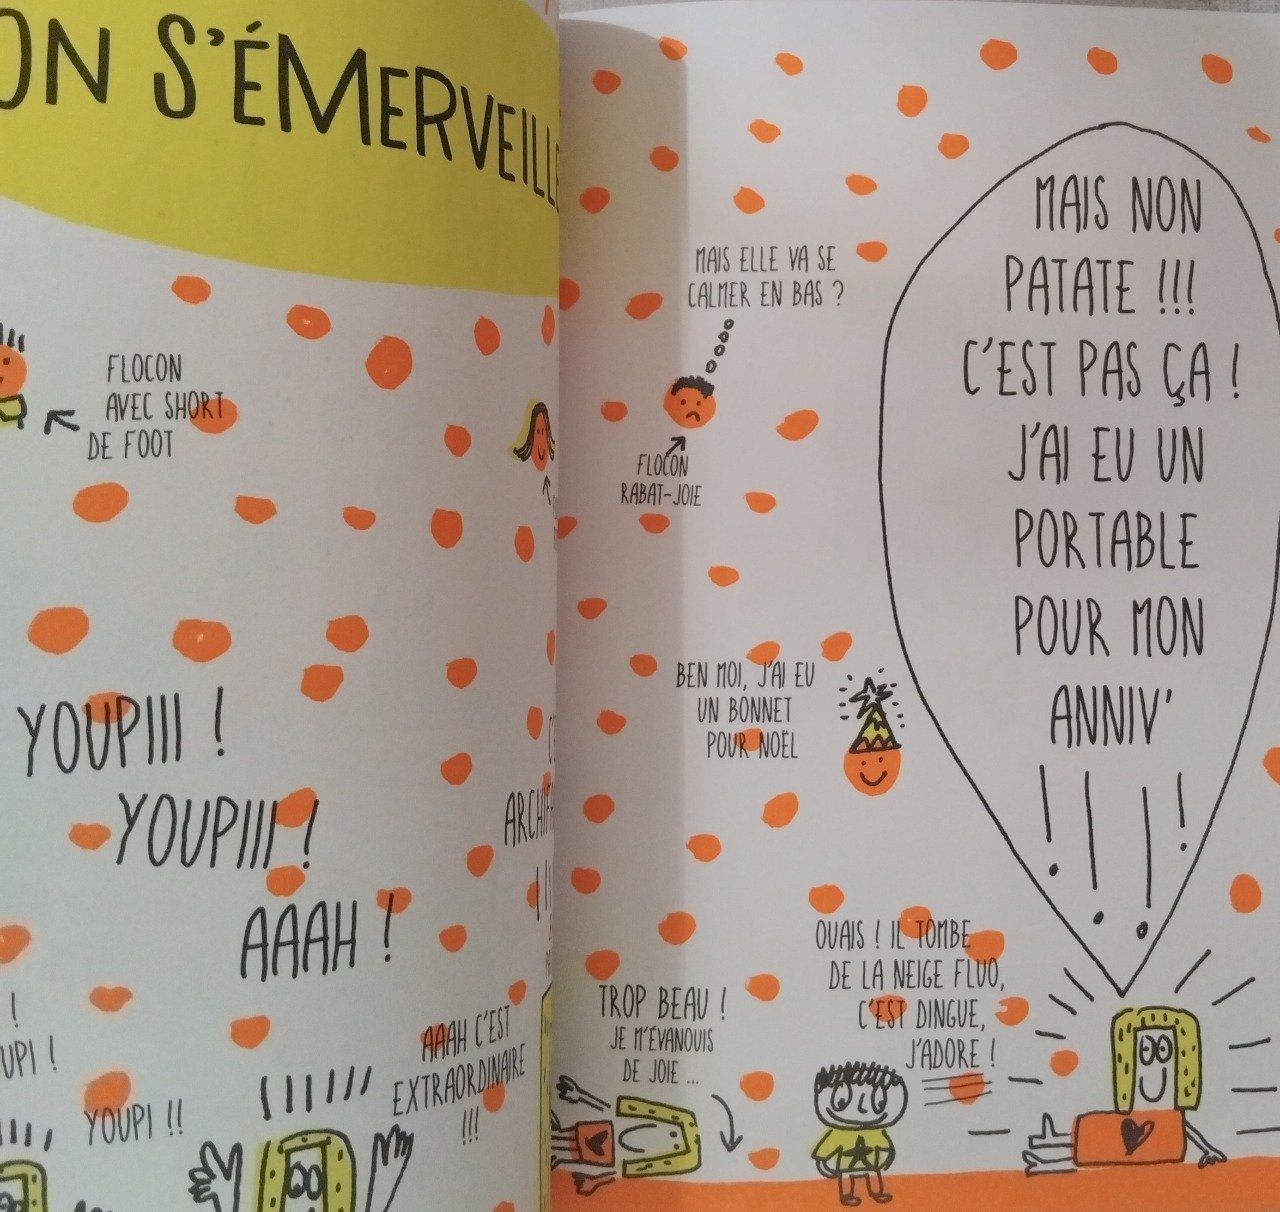 ON S'ÉMERVEILL
FLOCON
AVEC SHORT
DE FOOT
YOUPIII !
YOUPIII !
AAAH !
UPI !
YOUPI !!
AAAH C'EST
EXTRAORDINAIRE
!!!
MAIS ELLE VA SE
CALMER EN BAS ?
FLOCON
RABAT-JOIE
MAIS NON
PATATE !!!
C'EST PAS ÇA !
J'AI EU UN
PORTABLE
POUR MON
ANNIV'
! ! ! !
BEN MOI, J'AI EU
UN BONNET
POUR NOËL
TROP BEAU !
JE M'ÉVANOUIS
DE JOIE ...
OUAIS ! IL TOMBE
DE LA NEIGE FLUO,
C'EST DINGUE,
J'ADORE !